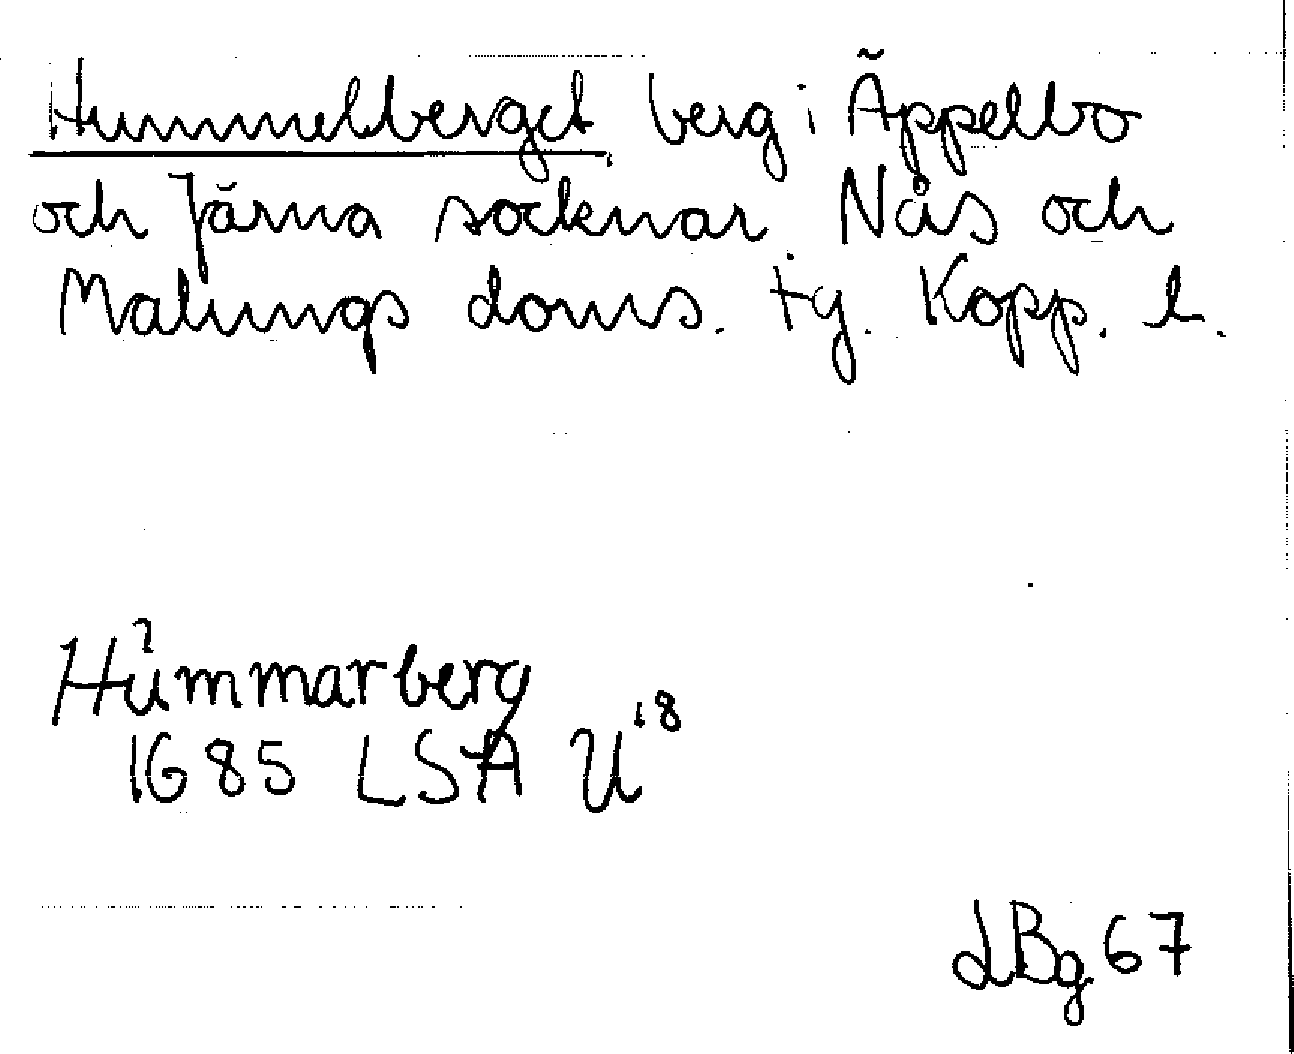 Hummelberget berg i Äppelbo
och Järna socknar Nås och
Malungs doms. tg. Kopp. l.
Hummarberg
1685 LSA U18
LBg 67